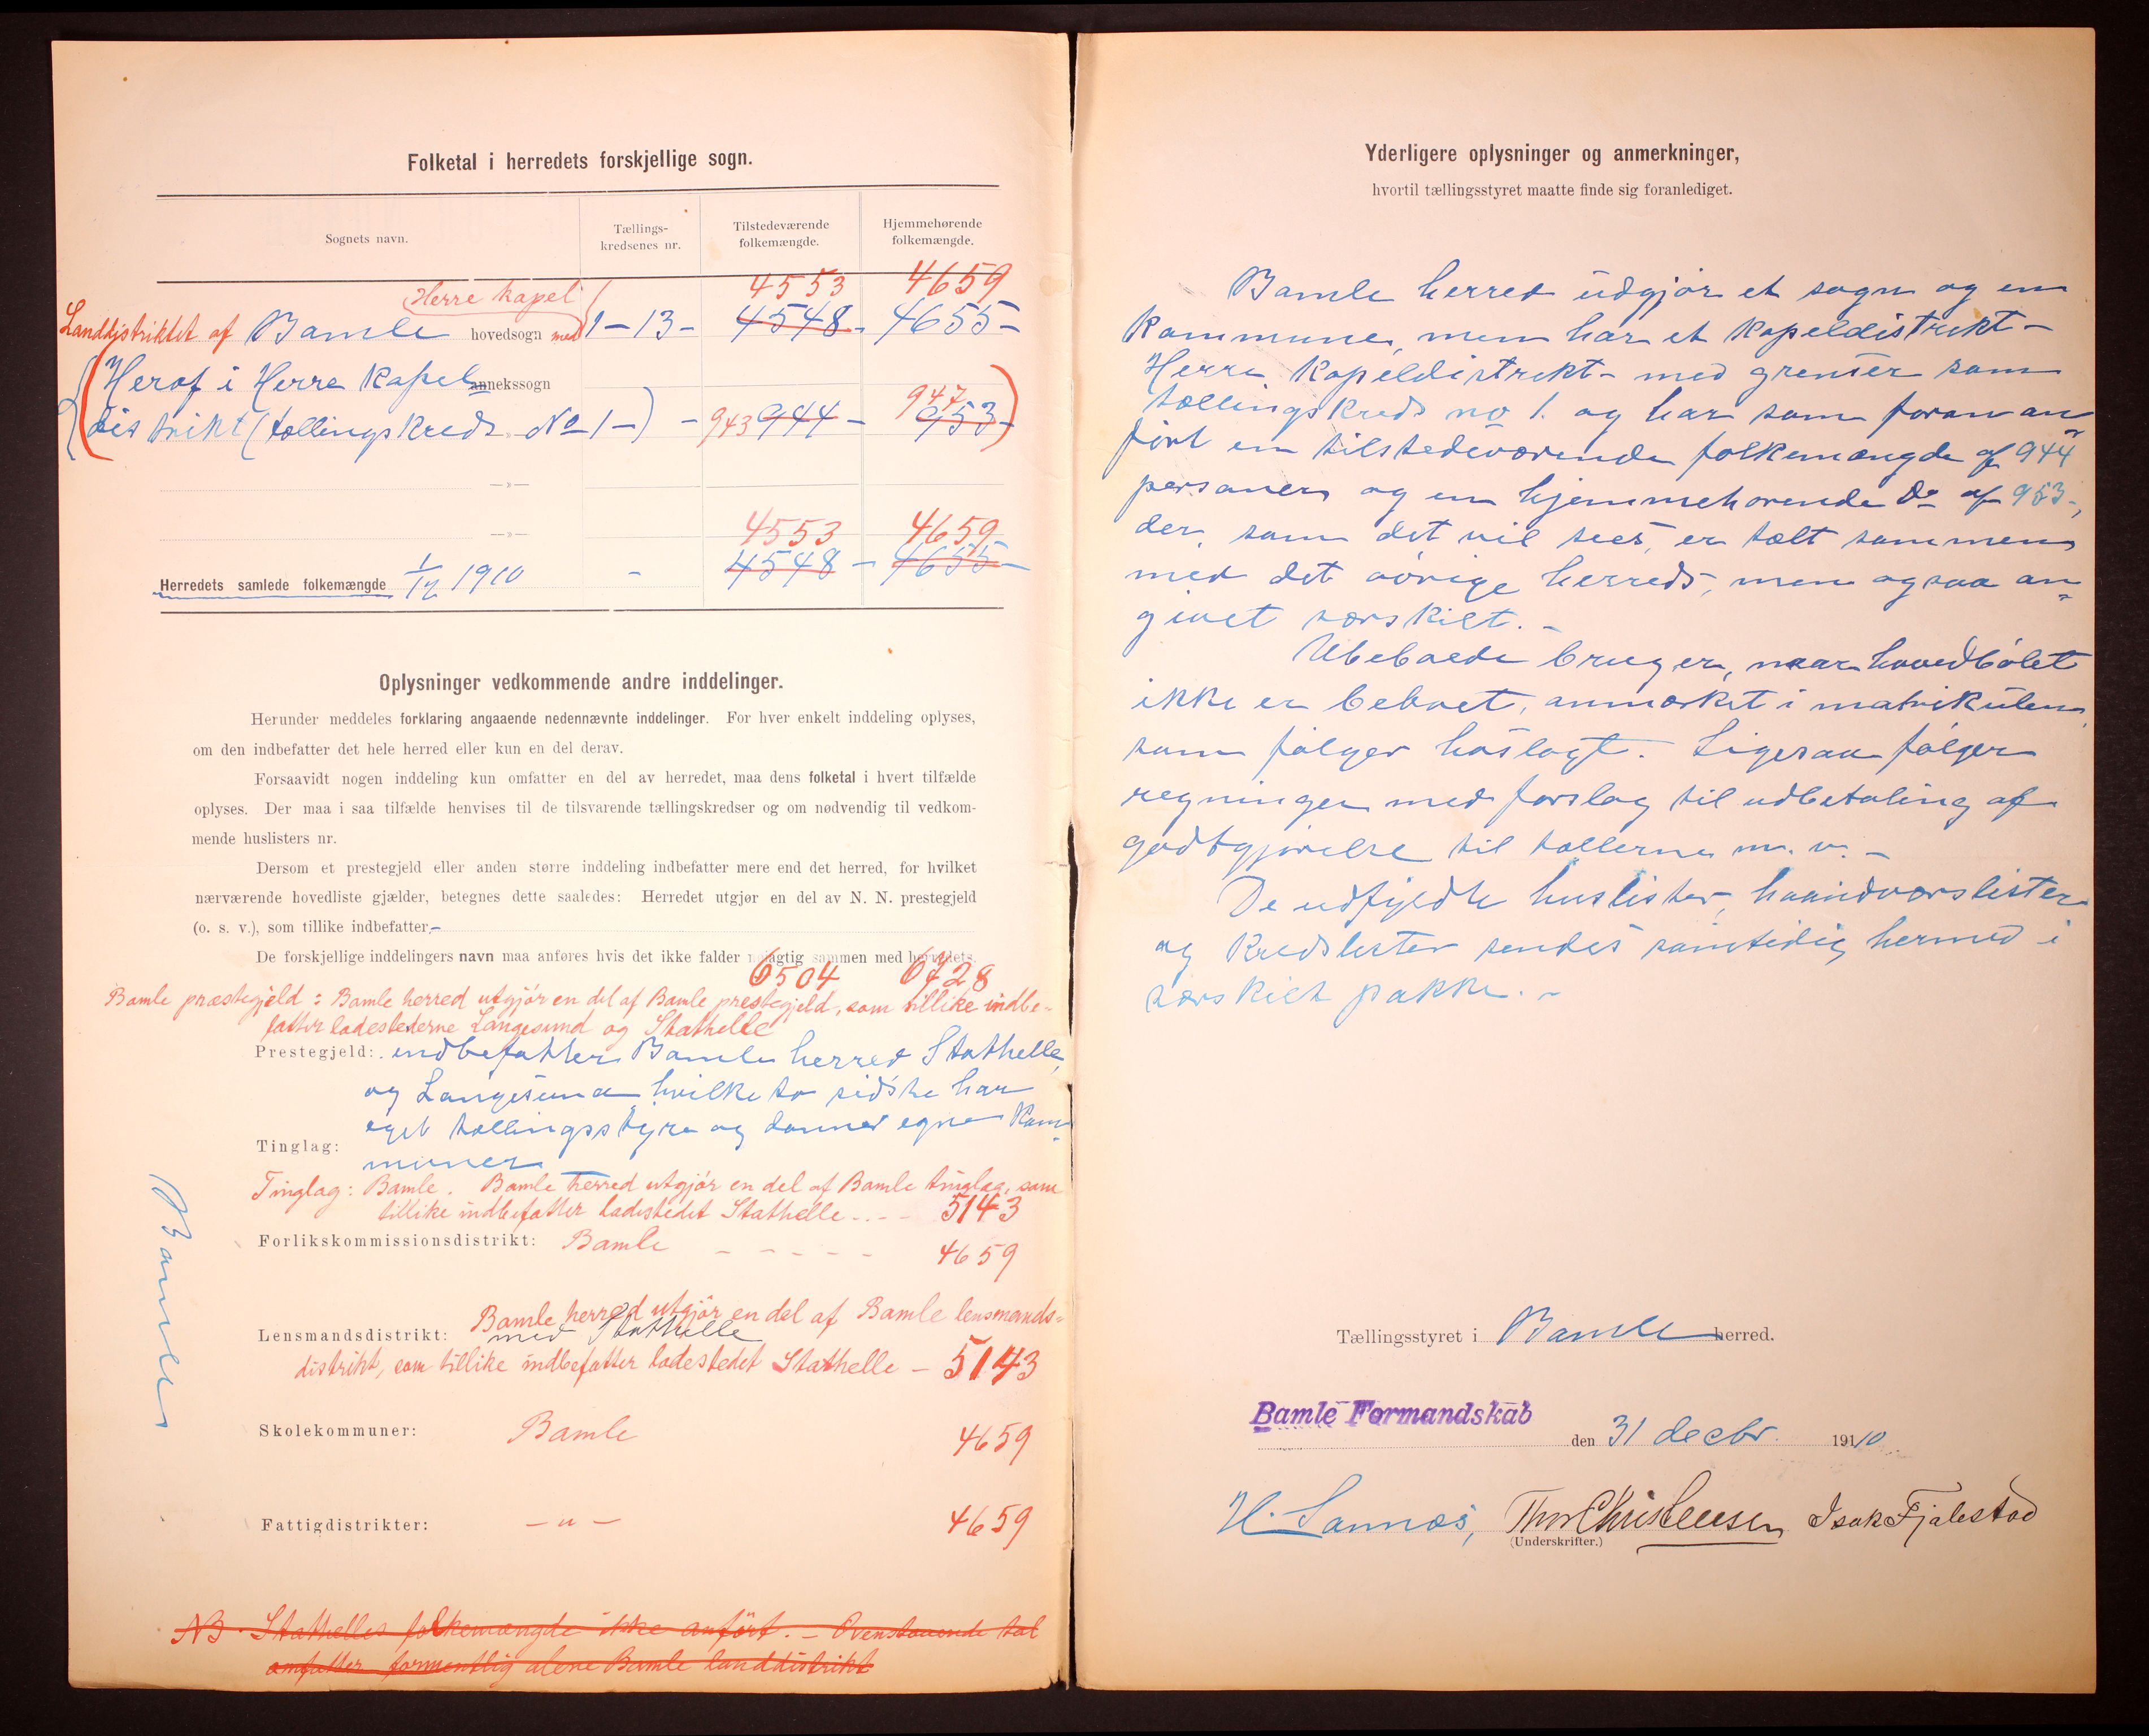 Folketal i herredets forskjellige sogn.
Sognets navn.
Tællings-
kredsenes nr.
Tilstedeværende
folkemængde.
Hjemmehørende
folkemængde.
4553 4659
Herre kapel
Landdistriktet af Bamle hovedsogn med 1-13- 4548- 4655-
Heraf i Herre kapel annekssogn
947
distrikt (tællingskreds No 1-) - 943 944- 953-
—»—
4553 4659
—»—
Herredets samlede folkemængde 1/12 1910 - 4548 - 4655 -
Oplysninger vedkommende andre inddelinger.
Herunder meddeles forklaring angaaende nedennævnte inddelinger. For hver enkelt inddeling oplyses,
om den indbefatter det hele herred eller kun en del derav.
Forsaavidt nogen inddeling kun omfatter en del av herredet, maa dens folketal i hvert tilfælde
oplyses. Der maa i saa tilfælde henvises til de tilsvarende tællingskredser og om nødvendig til vedkom-
mende huslisters nr.
Dersom et prestegjeld eller anden større inddeling indbefatter mere end det herred, for hvilket
nærværende hovedliste gjælder, betegnes dette saaledes: Herredet utgjør en del av N. N. prestegjeld
(o. s. v.), som tillike indbefatter,-
De forskjellige inddelingers navn maa anføres hvis det ikke falder nøiagtig sammen med herredets.
6504 6728
Bamle præstegjeld: Bamle herred utgjör en del af Bamle prestegjeld, som tillike indbe-
fatter ladestederne Langesund og Stathelle
Prestegjeld: indbefatter Bamle herred Stathelle,
og Langesund hvilke to sidste har
eget tællingsstyre og danner egne kom-
Tinglag:
muner
Tinglag: Bamle. Bamle herred utgjör en del af Bamle tinglag, som
tillike indbefatter ladestedet Stathelle - - - 5143
Forlikskommissionsdistrikt: Bamle - - - - - 4659
Bamle herred utgjör en del af Bamle lensmands-
Lensmandsdistrikt: med Stathelle
distrikt, som tillike indbefatter ladestedet Stathelle - 5143
Skolekommuner: Bamle 4659
Fattigdistrikter: - " - 4659
Bamle
NB. Stathelles folkemængde ikke anfört. - Ovenstaaende tal
omfatter formentlig alene Bamle landdistrikt
Yderligere oplysninger og anmerkninger,
hvortil tællingsstyret maatte finde sig foranlediget.
Bamle herred udgjør et sogn og en
kommune, men har et kapeldistrikt -
Herre Kapeldistrikt - med grenser som
tællingskreds no 1. og har som foran an-
ført en tilstedeværende folkemængde af 944
personer og en hjemmehørende Do af 953-,
der, som det vil sees, er tælt sammen
med det øvrige herreds, men ogsaa an-
givet særskilt. -
Ubeboede bruger, naar hovedbølet
ikke er beboet, anmærket i matrikulen,
som følger hoslagt. Ligesaa følger
regninger med forslag til udbetaling af
godtgjørelse til tællerne m. v. -
De udfyldte huslister, haandværslister
og kredslister sendes samtidig hermed i
særskilt pakke. -
Tællingsstyret i Bamle herred.
Bamle Formandskab
den 31 decbr. 1910
H. Sannæs, Thor Christensen Isak Fjalestad
(Underskrifter.)